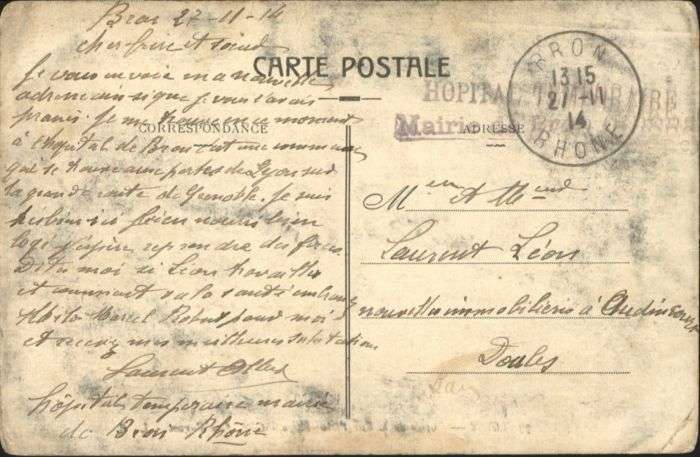 Bron 27-11-14
cher frère et soeur
Je vous envoie ma nouvelle
adresse ainsi que je vous l'avais
promis. Je me trouve en ce moment
à l'hopital de Bron c'est une commune
qui se trouve aux portes de Lyon sur
la grande route de Grenoble. Je suis
très bien ici bien nourri bien
logé j'espère reprendre des forces
Dites moi si Léon travaille
et comment va la santé embrassez
Marcel Robert pour moi
et recevez mes meilleures salutations
Laurent
hôpital temporaire mairie
de Bron Rhône
CARTE POSTALE
CORRESPONDANCE
ADRESSE
HOPITAL TEMPORAIRE
Mairie
BRON
13 15
27-11
14
RHONE
M
Laurent Léon
nouvelles immobilières à Audincourt
Doubs